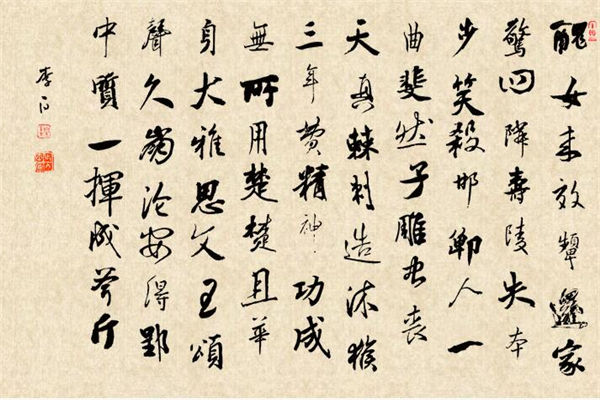 醜女来效顰還家
驚四隣壽陵失本
步笑殺邯鄲人一
曲斐然子雕虫喪
天真棘刺造沐猴
三年費精神功成
無所用楚楚且華
身大雅思文王頌
聲久崩淪安得郢
中質一揮成斧斤
李白